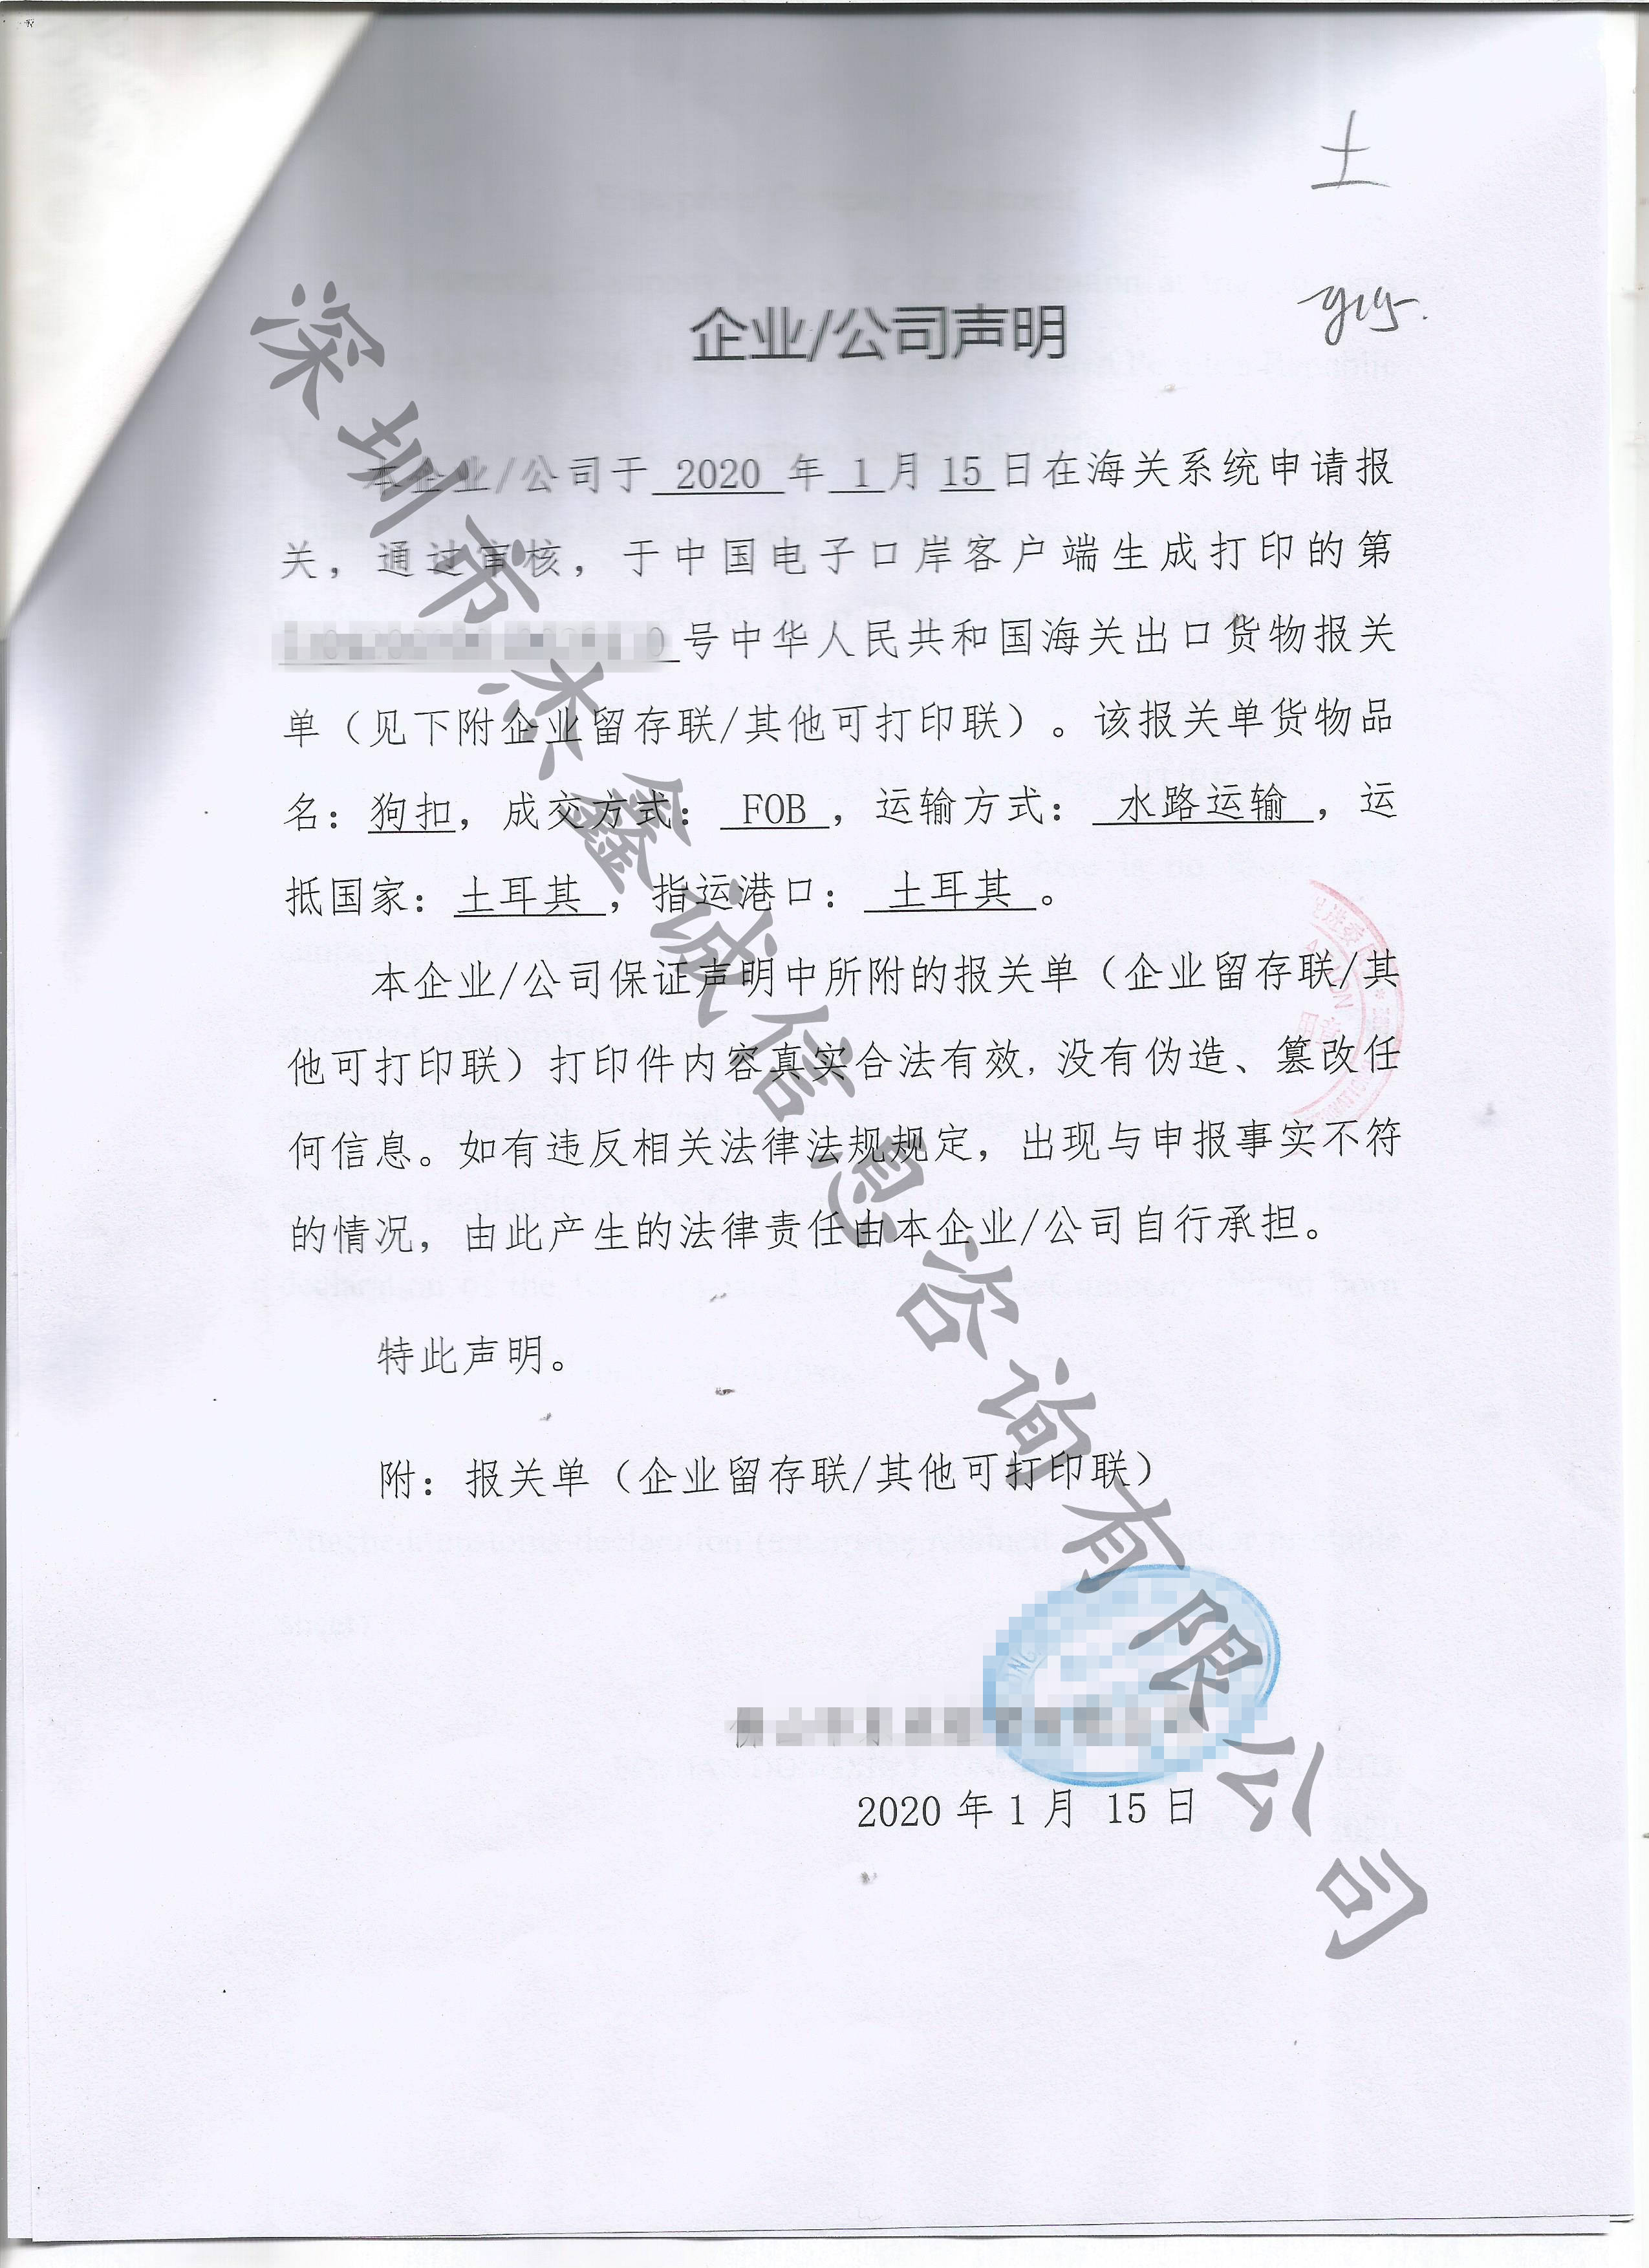 土
企业/公司声明
本企业/公司于 2020 年 1 月 15 日在海关系统申请报
关，通过审核，于中国电子口岸客户端生成打印的第
号中华人民共和国海关出口货物报关
单（见下附企业留存联/其他可打印联）。该报关单货物品
名：狗扣，成交方式： FOB ，运输方式： 水路运输 ，运
抵国家：土耳其 ，指运港口： 土耳其 。
本企业/公司保证声明中所附的报关单（企业留存联/其
他可打印联）打印件内容真实合法有效,没有伪造、篡改任
何信息。如有违反相关法律法规规定，出现与申报事实不符
的情况，由此产生的法律责任由本企业/公司自行承担。
特此声明。
附：报关单（企业留存联/其他可打印联）
2020 年 1 月 15 日
深圳市杰鑫诚信息咨询有限公司